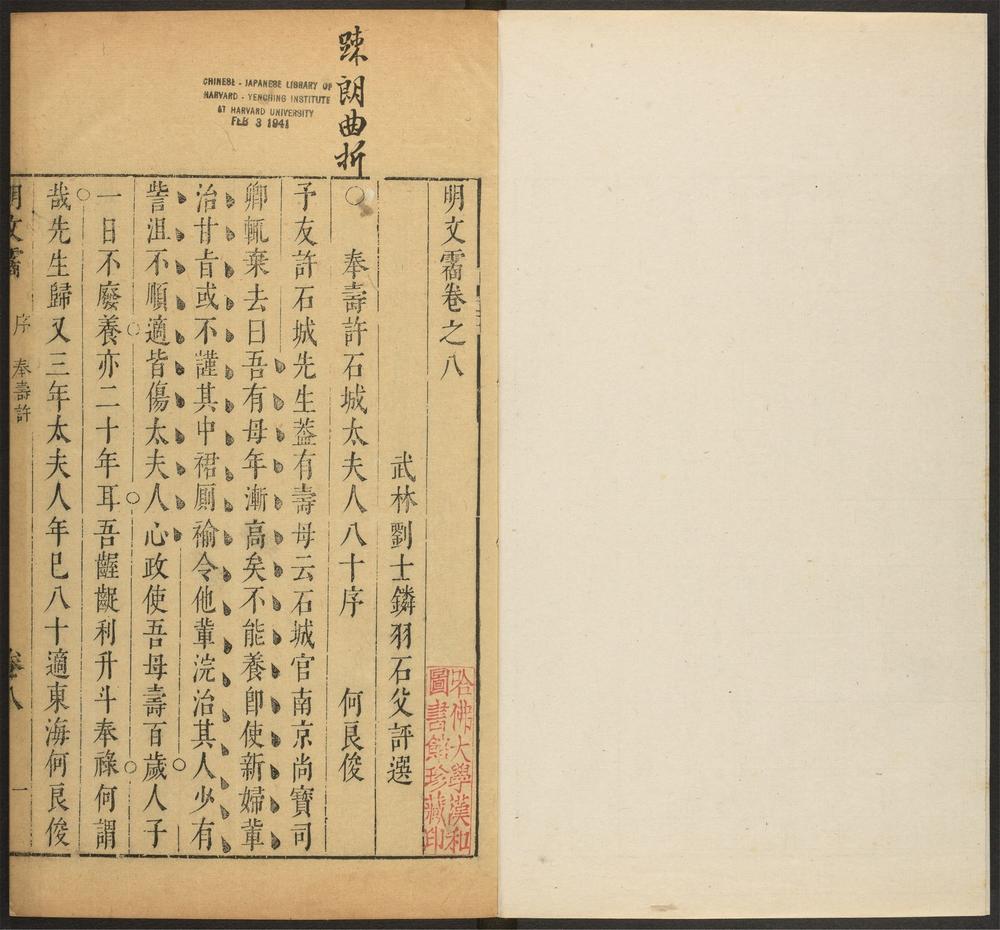 疎朗曲折
CHINESE - JAPANESE LIBRARY OF
HARVARD - YENCHING INSTITUTE
AT HARVARD UNIVERSITY
FEB 3 1941
明文霱卷之八
武林劉士鏻羽石父評選
○奉壽許石城太夫人八十序 何良俊
予友許石城先生蓋有壽母云石城官南京尚寶司
卿輒棄去曰吾有母年漸高矣不能養卽使新婦輩
治甘旨或不謹其中裙厠褕令他輩浣治其人少有
訾沮不順適皆傷太夫人心政使吾母壽百歲人子
一日不廢養亦二十年耳吾齷齪利升斗奉祿何謂
哉先生歸又三年太夫人年巳八十適東海何良俊
明文霱 序 奉壽許 卷八 一
哈佛大學漢和
圖書館珍藏印